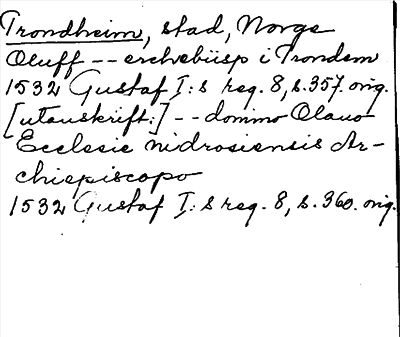 Trondheim, stad, Norge
Oluff -- erchebiisp i Trondem
1532 Gustaf I:s reg. 8, s. 357. orig.
[utanskrift:] -- domino Olauo
Ecclesie nidrosiensis Ar-
chiepiscopo
1532 Gustaf I:s reg. 8, s. 360. orig.